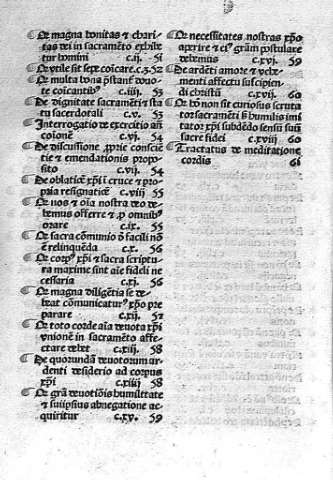 Qr magna bonitas & chari
tas dei in sacramēto exhibe
tur homini c.ij. 51
Qr vtile sit sepe cōicare.c.3.52
Qr multa bona p̄stant̄ deuo
te cōicantibꝰ c.iiij. 53
De dignitate sacramēti & sta
tu sacerdotali c.v. 53
Interrogatio de exercitio an̄
cōionē c.vi. 54
De discussione ꝓprie consciē
tie & emendationis propo
sito c.vij. 54
De oblatiōe xp̄i ī cruce & pro
pria resignatiōe c.viij 55
Qr nos & oīa nostra deo de
bemus offerre & ꝓ omnibꝰ
orare c.ix. 55
Qr sacra cōmunio d̄ facili nō
ē relinquēda c.x. 56
Qr corpꝰ xp̄i & sacra scriptu
ra maxime sint aīe fideli ne
cessaria c.xi. 56
Qr magna diligētia se de
beat cōmunicaturꝰ xp̄o pre
parare c.xij. 57
Qr toto corde aīa deuota xp̄i
vnionē in sacramēto affe
ctare debet c.xiij. 58
De quorundā deuotorum ar
denti desiderio ad corpus
xp̄i c.xiiij 58
Qr grā deuotiōis humilitate
& suiipsius abnegatione ac
quiritur c.xv. 59
Qr necessitates nostras xp̄o
aperire & eiꝰ grām postulare
debemus c.xvi. 59
De ardēti amore & vehe
menti affectu suscipien
di christū c.xvij. 60
Qr hō non sit curiosus scruta
tor sacramēti s̄ humilis imi
tator xp̄i subdēdo sensū suū
sacre fidei c.xviij 60
Tractatus de meditatione
cordis 61